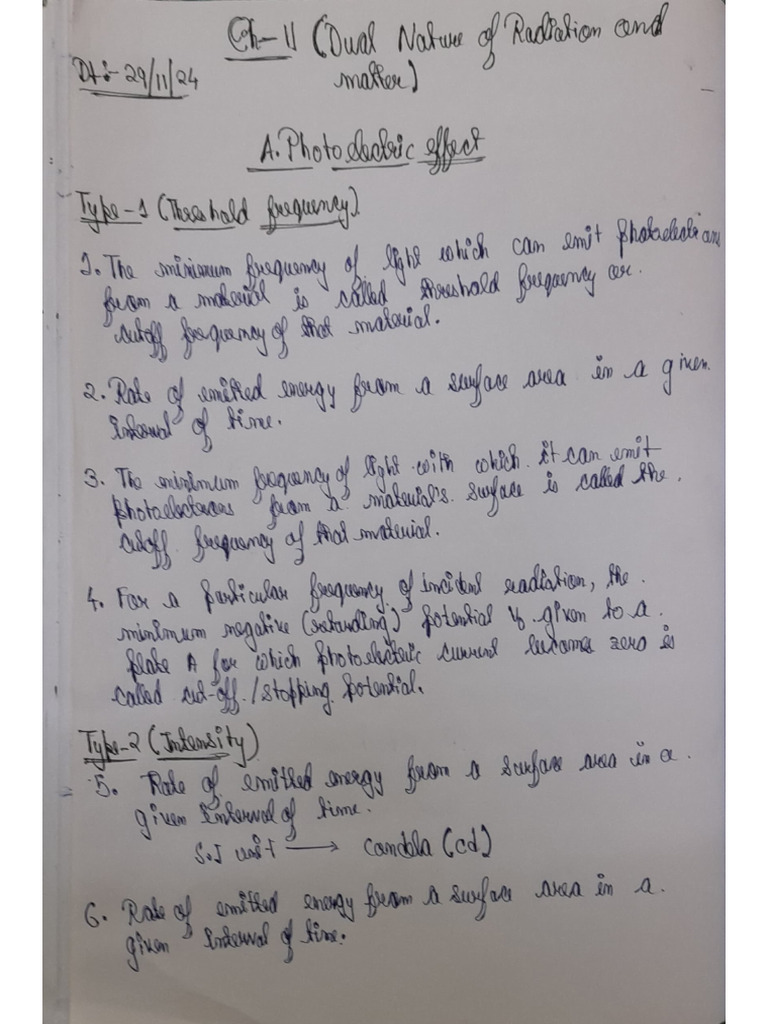 Ch-11 (Dual Nature of Radiation and
matter)
Dt:- 29/11/24
A. Photoelectric effect
Type-1 (Threshold frequency)
1. The minimum frequency of light which can emit photoelectrons
from a material is called threshold frequency or
cutoff frequency of that material.
2. Rate of emitted energy from a surface area in a given
interval of time.
3. The minimum frequency of light with which it can emit
photoelectrons from a material's surface is called the
cutoff frequency of that material.
4. For a particular frequency of incident radiation, the
minimum negative (retarding) potential V₀ given to a
plate A for which photoelectric current becomes zero is
called cut-off/stopping potential.
Type-2 (Intensity)
5. Rate of emitted energy from a surface area in a
given interval of time.
S.I unit → candela (cd)
6. Rate of emitted energy from a surface area in a
given interval of time.